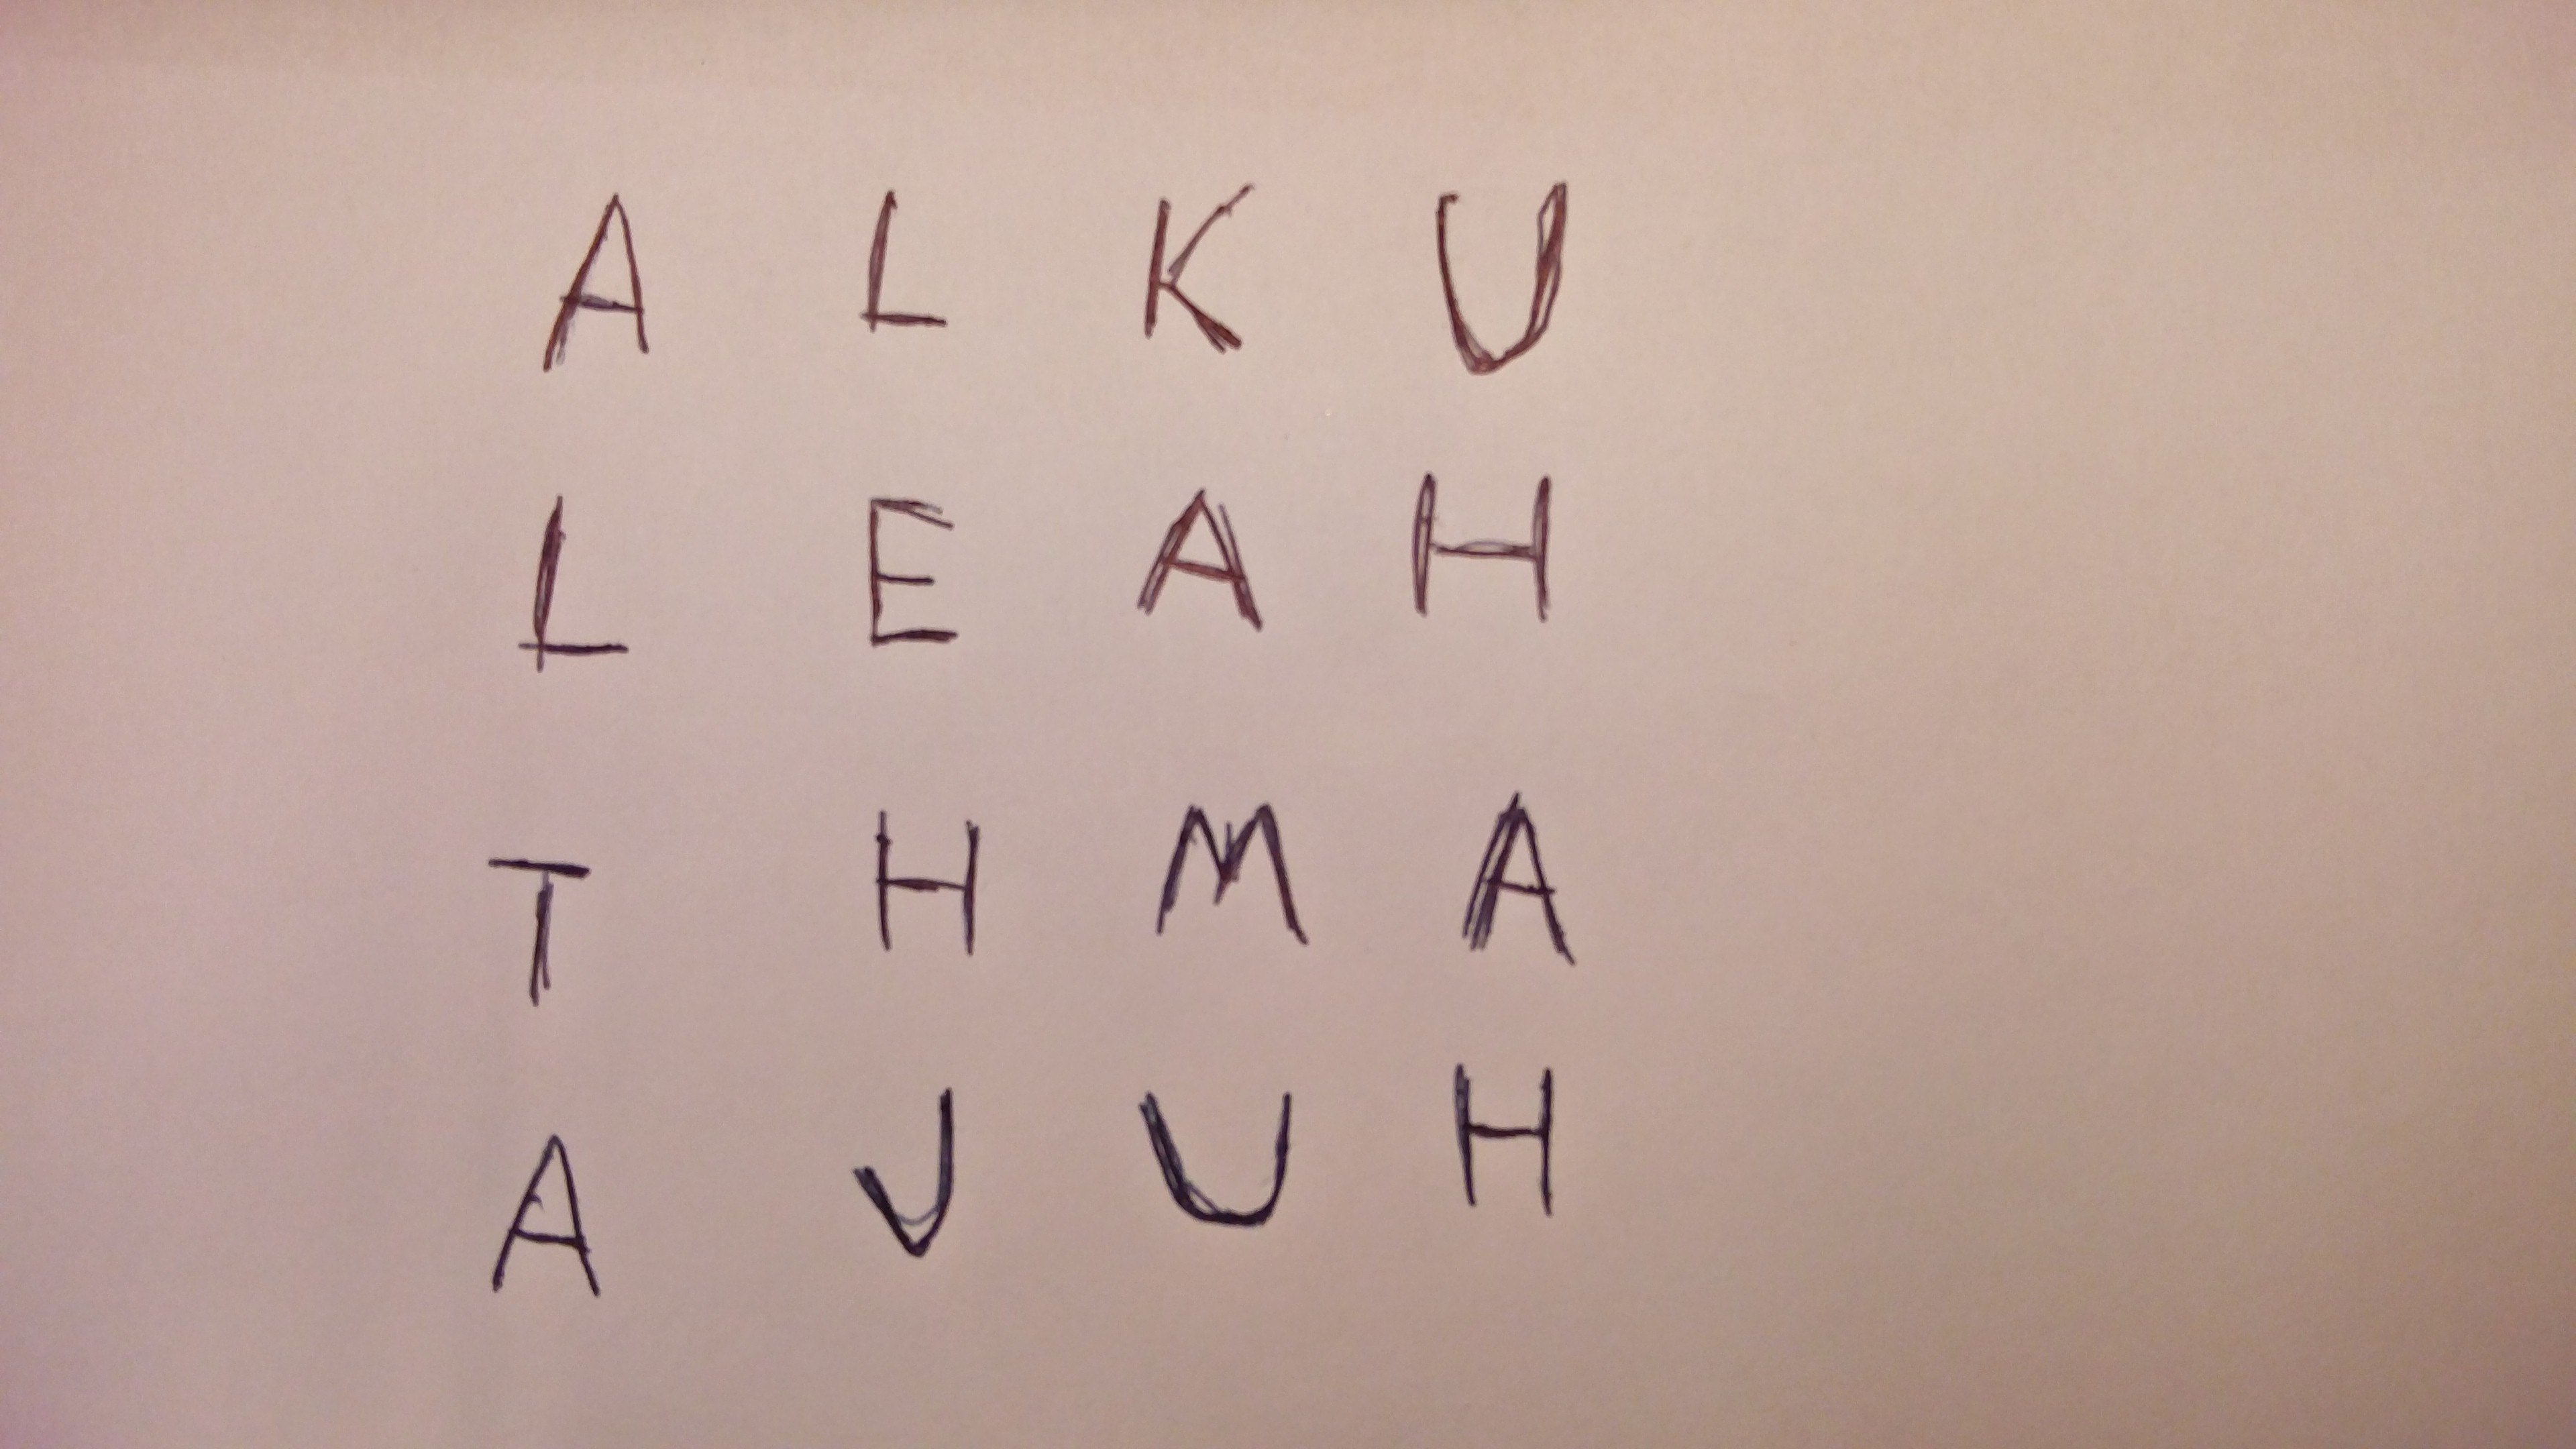 A L K U
L E A H
T H M A
A J U H